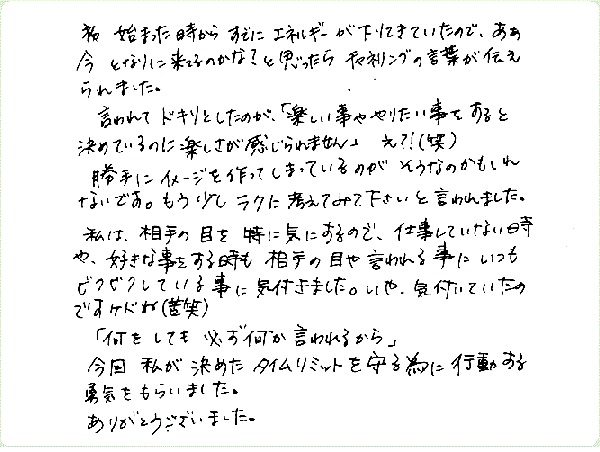 私 始まった時から すでに エネルギーが下りてきていたので、ああ
今 となりに来てるのかな?と思ったら チャネリングの言葉が伝え
られました。
言われて ドキリとしたのが、「楽しい事ややりたい事をすると
決めているのに楽しさが感じられません」 え?!(笑)
勝手に イメージを作ってしまっているのが そうなのかもしれ
ないです。もう少し ラクに考えてみて下さいと言われました。
私は、相手の目を 特に気にするので、仕事していない時
や、好きな事をする時も 相手の目や言われる事に いつも
ビクビクしている事に気付きました。いや、気付いていたの
ですケドね(苦笑)
「何をしても 必ず何か言われるから」
今回 私が 決めた タイムリミットを守る為に行動する
勇気をもらいました。
ありがとうございました。